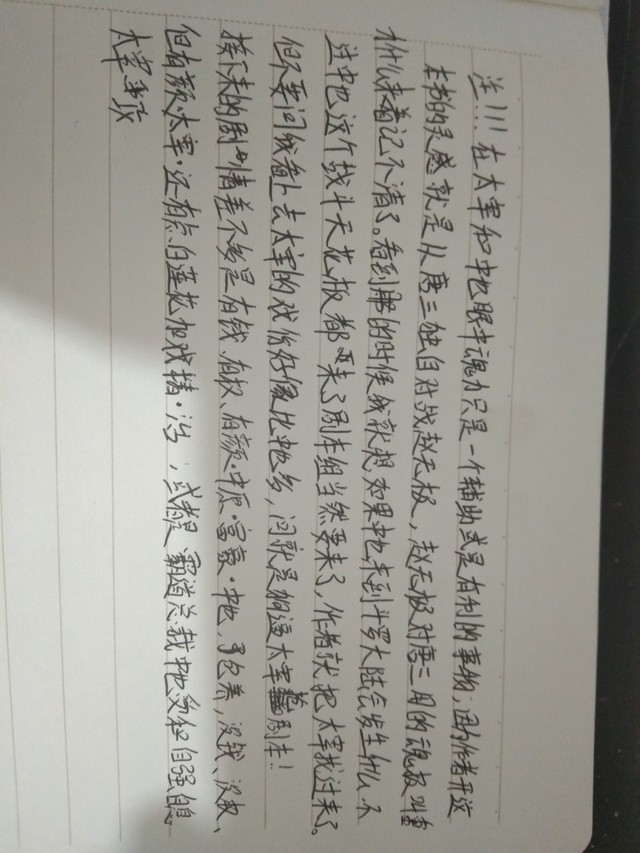 注!!!在太宰和中也眼中魂力只是一个辅助或是有利的事物;因作者开这
本书的灵感就是从唐三独自对战赵无极,赵无极对唐三用的魂技叫重
什么来着记不清了。看到那的时候我就想如果中也来到斗罗大陆会发生什么不
过中也这个战斗天花板都要来了剧本组当然要来了,作者就把太宰找过来了。
但不要问我看上去太宰的戏份好像比中也多,问就是太宰剧本!
接下来的剧情差不多是有钱、有权、有颜·中原·富豪·中也,包养,没钱、没权、
但有颜·太宰·还有点白莲花和戏精·治;或者是霸道总裁中也爱和自强的
太宰